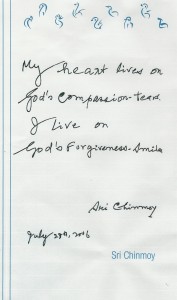 My heart lives on
God's Compassion-Tears.
I live on
God's Forgiveness-Smile
Sri Chinmoy
July 29th, 2006
Sri Chinmoy